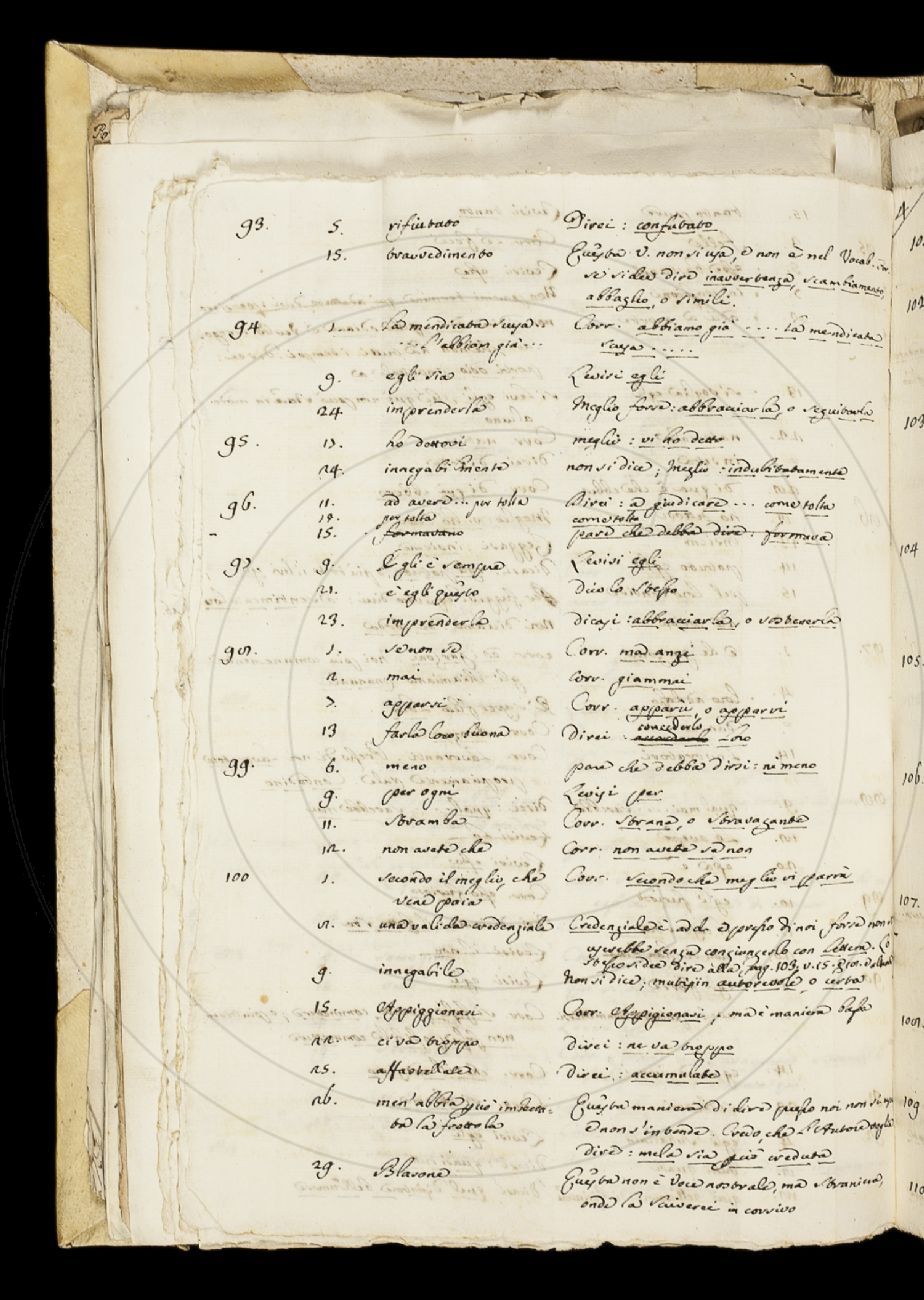 93. 5. rifiutato Direi: confutato
15. travvedimento Questa v. non si usa, e non è nel Vocab.
se si dee dire inavvertenza, scambiamento,
abbaglio, o simili.
94. 1. La mendicata scusa Corr. abbiamo già .... La mendicata
... l'abbiam già ... scusa .....
9. egli sia Levisi egli
24 imprenderla Meglio forse: abbracciarla, o seguitarla
95. 13. ho dettovi meglio: vi ho detto
24. innegabilmente non si dice; Meglio: indubitatamente
96. 11. ad avere ... per tolta Direi: a giudicare ... come tolta
14. per tolta come tolta
15. formavano pare che debba dire: formava
97. 9. Egli è sempre Levisi egli
21. è egli questo Dico lo stesso
23. imprenderla dicasi: abbracciarla, o sostenerla
98. 1. se non se Corr. ma anzi
2 mai Corr. giammai
7. apparsi Corr. apparìi, o apparvi
13 farla loro buona Direi: concederlo loro
99. 6. meno pare che debba dirsi: nemeno
9. per ogni Levisi per
11. stramba Corr. strana, o stravagante
12. non avete che Corr. non avete se non
100 1. secondo il meglio, che Corr. secondo che meglio vi parrà
vene paia
2. una valida credenziale Credenziale è add. e presso di noi forse non si
userebbe senza congiungerlo con Lettera. Lo
stesso si dee dire alla pag. 103, v. 15.
9. innegabile Non si dice; mutisi in autorevole, o certa
15. Appiggionasi Corr. Appigionasi, ma è maniera bassa
22. ci va troppo direi: ne va troppo
25. affastellate Direi: accumulate
26. men'abbia più imbecca- Questa maniera di dire presso noi non si usa
ta la frottola e non s'intende. Credo, che l'Autore voglia
dire: mela sia più creduta
29. Blasone Questa non è voce nostrale, ma straniera,
onde la scriverei in corsivo